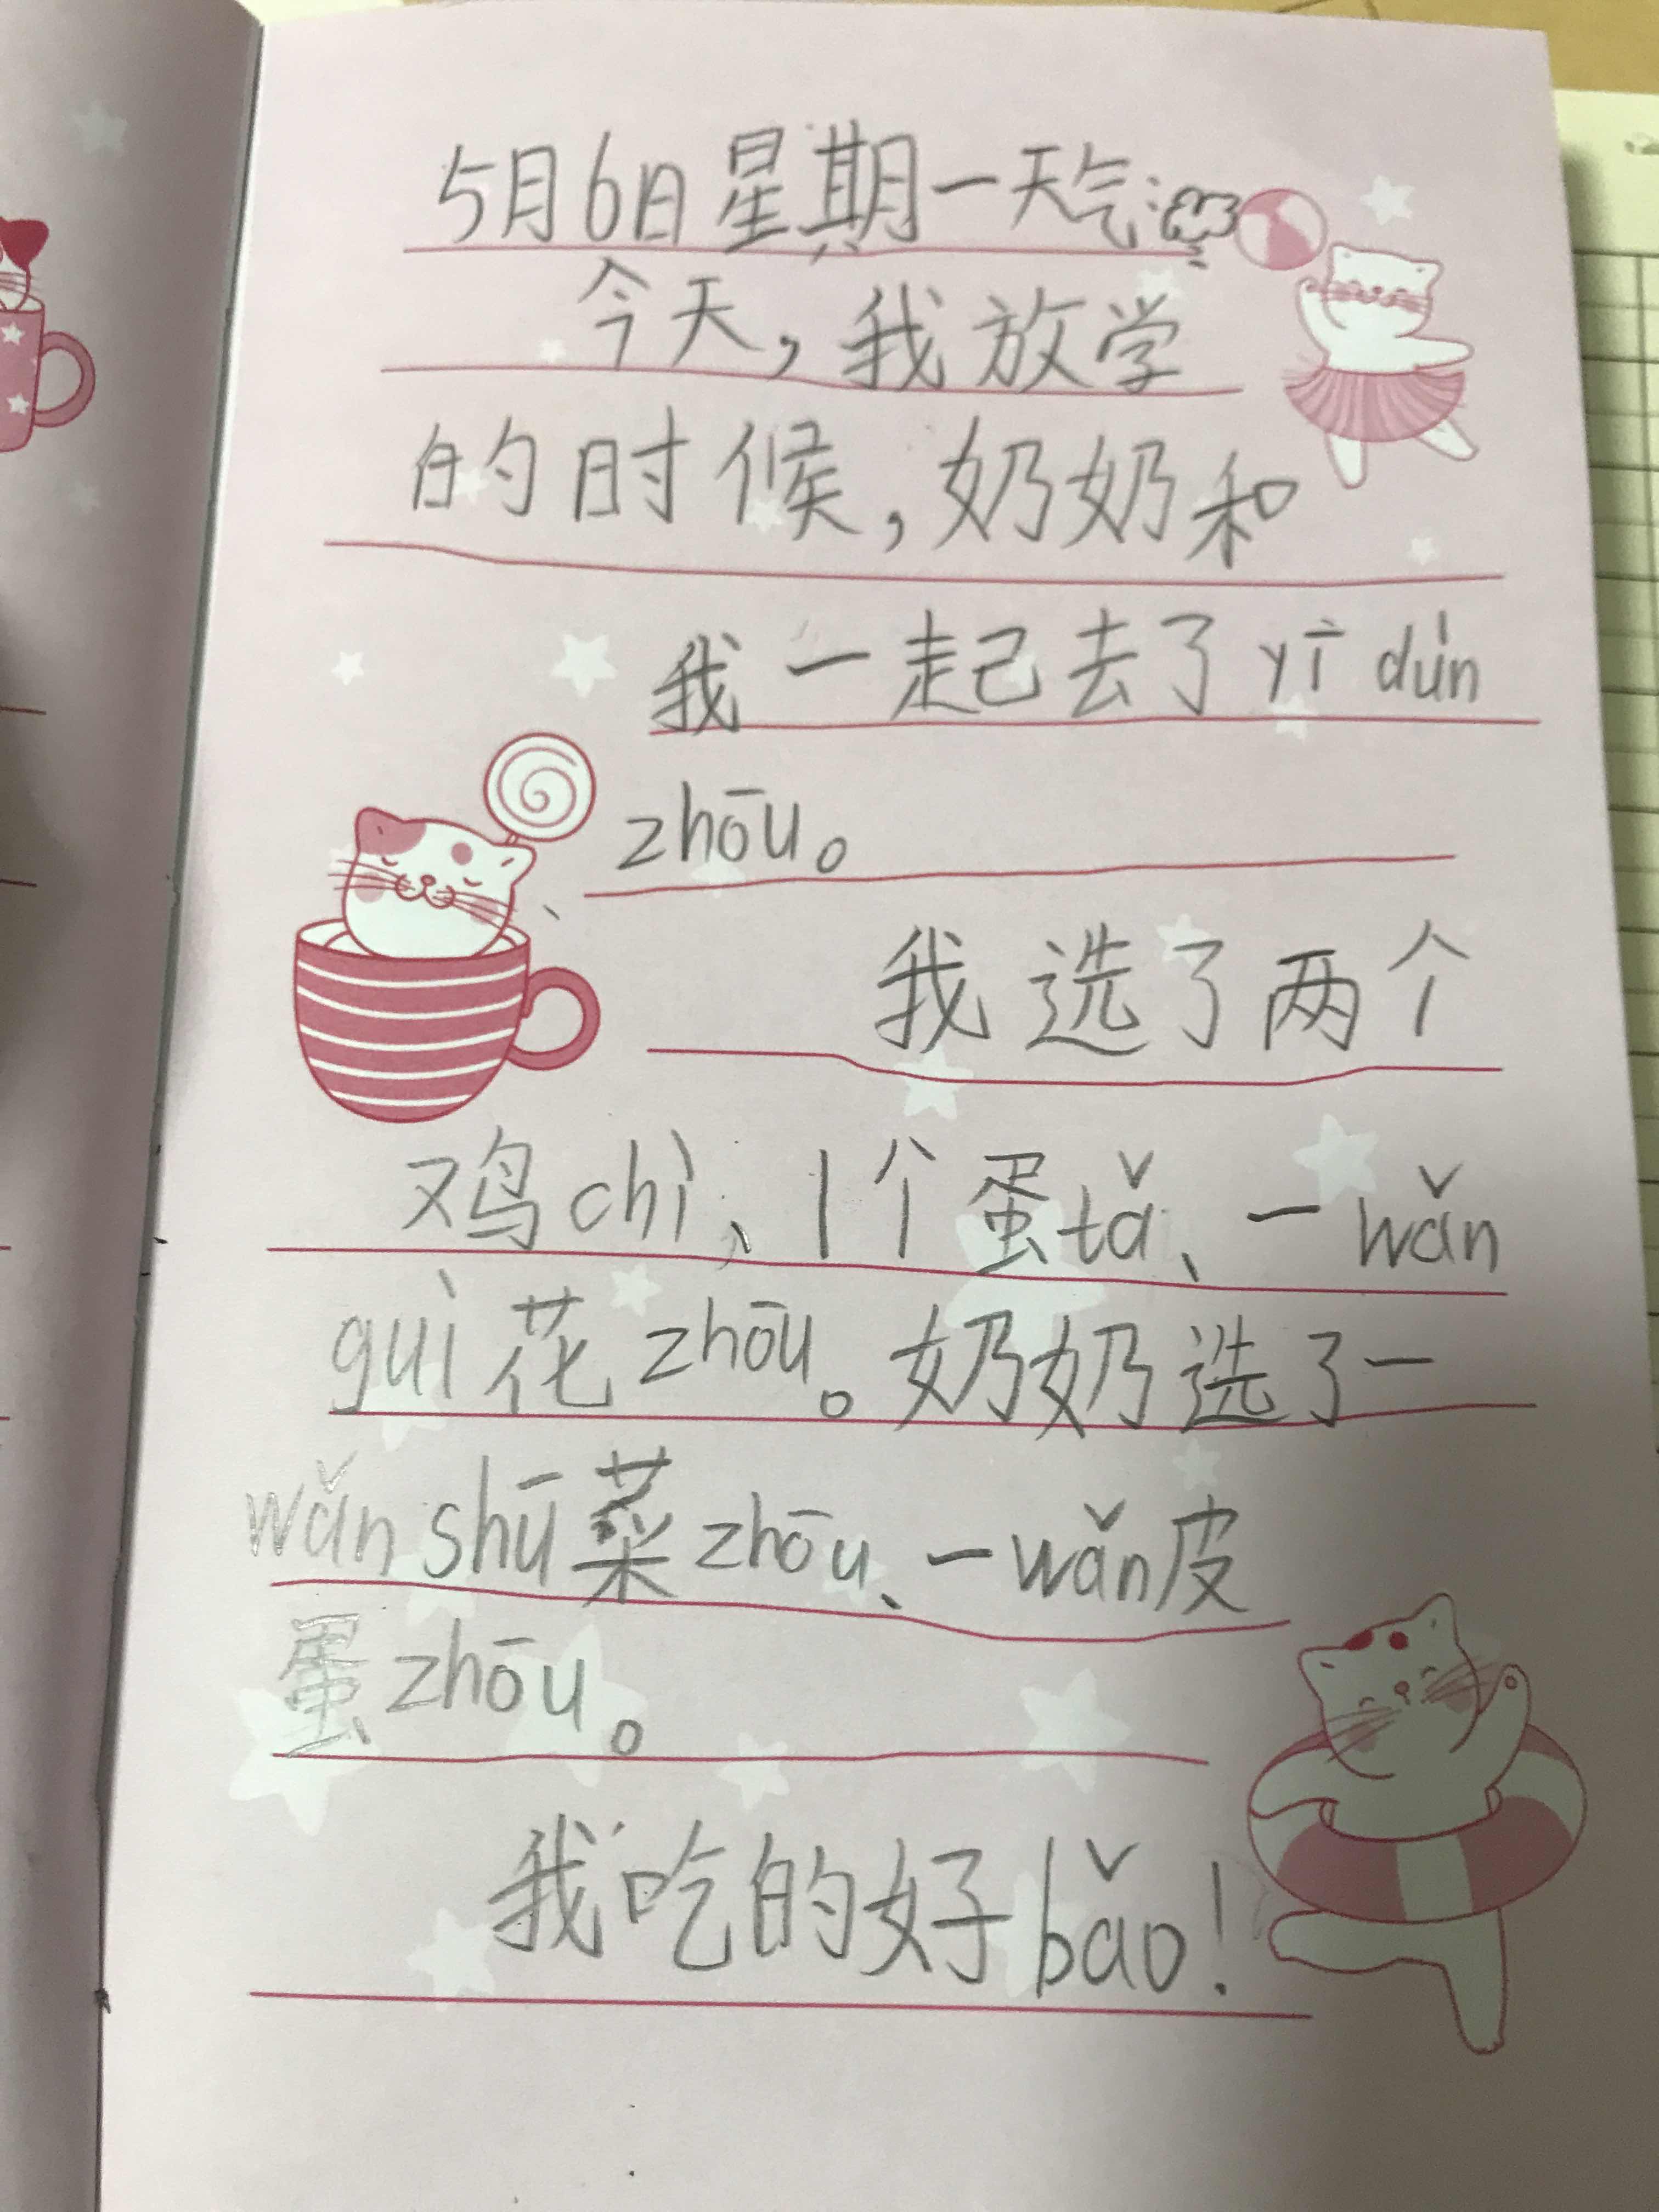 5月6日星期一天气:
今天,我放学
的时候,奶奶和
我一起去了yī dùn
zhōu。
我选了两个
鸡chì、1个蛋tǎ、一wǎn
guì花zhōu。奶奶选了一
wǎn shū菜zhōu、一wǎn皮
蛋zhōu。
我吃的好bǎo!